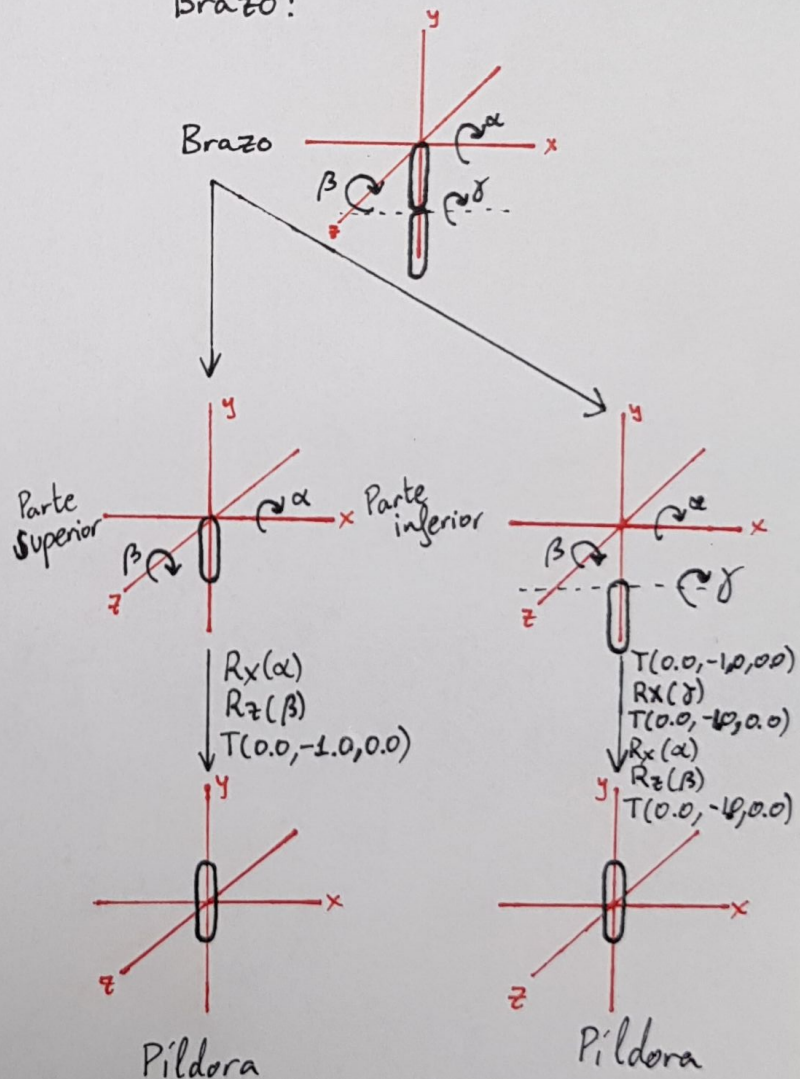 Brazo:
y
Brazo
α
x
β
γ
z
y
y
Parte
superior
α
x
β
z
Parte
inferior
α
x
β
γ
z
Rx(α)
Rz(β)
T(0.0,-1.0,0.0)
T(0.0,-1.0,0.0)
Rx(γ)
T(0.0,-1.0,0.0)
Rx(α)
Rz(β)
T(0.0,-1.0,0.0)
y
x
z
Píldora
y
x
z
Píldora